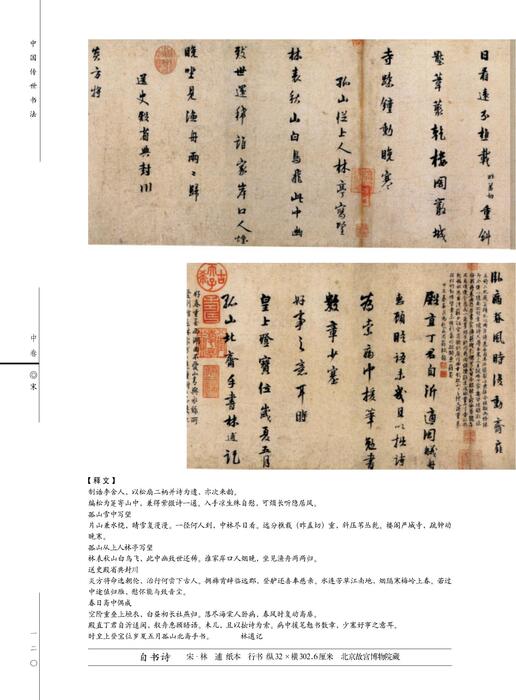 中国传世书法
中卷◎宋
一二〇
日看遠分樵載昨蓋切重斜
壓葦叢乾樓閣嚴城
寺踈鐘動晚寒
孤山從上人林亭寫望
林表秋山白鳥飛此中幽
致世還稀誰家岸口人煙
晚坐見漁舟兩々歸
送史殿省典封川
炎方將
臥病春風時復動齋扉
殿直丁君自沂適閩艤舟
惠顧晤語未幾且以拙詩
為索病中援筆勉書
數章少塞
好事之意耳時
皇上登寶位歲夏五月
孤山北齋手書林逋記
【释文】
制诰李舍人，以松扇二柄并诗为遗，亦次来韵。
编松为箑寄山中，兼得紫微诗一通。入手凉生殊自慰，可烦长听隐居风。
孤山雪中写望
片山兼水绕，晴雪复漫漫。一径何人到，中林尽日看。远分樵载（昨盖切）重，斜压苇丛乾。楼阁严城寺，疏钟动
晚寒。
孤山从上人林亭写望
林表秋山白鸟飞，此中幽致世还稀。谁家岸口人烟晚，坐见渔舟两两归。
送史殿省典封川
炎方将命选朝伦，治行何尝下古人。拥旆肯辞临远郡，登舻还喜奉慈亲。水连芳草江南地，烟隔寒梅岭上春。若过
中途值归雁，慰怀能与致音尘。
春日斋中偶成
空阶重叠上垣衣，白昼初长社燕归。落尽海棠人卧病，春风时复动斋扉。
殿直丁君自沂适闽，舣舟惠顾晤语。未几，且以拙诗为索。病中援笔勉书数章，少塞好事之意耳。
时皇上登宝位岁夏五月孤山北斋手书。 林逋记
自书诗 宋·林逋 纸本 行书 纵32×横302.6厘米 北京故宫博物院藏